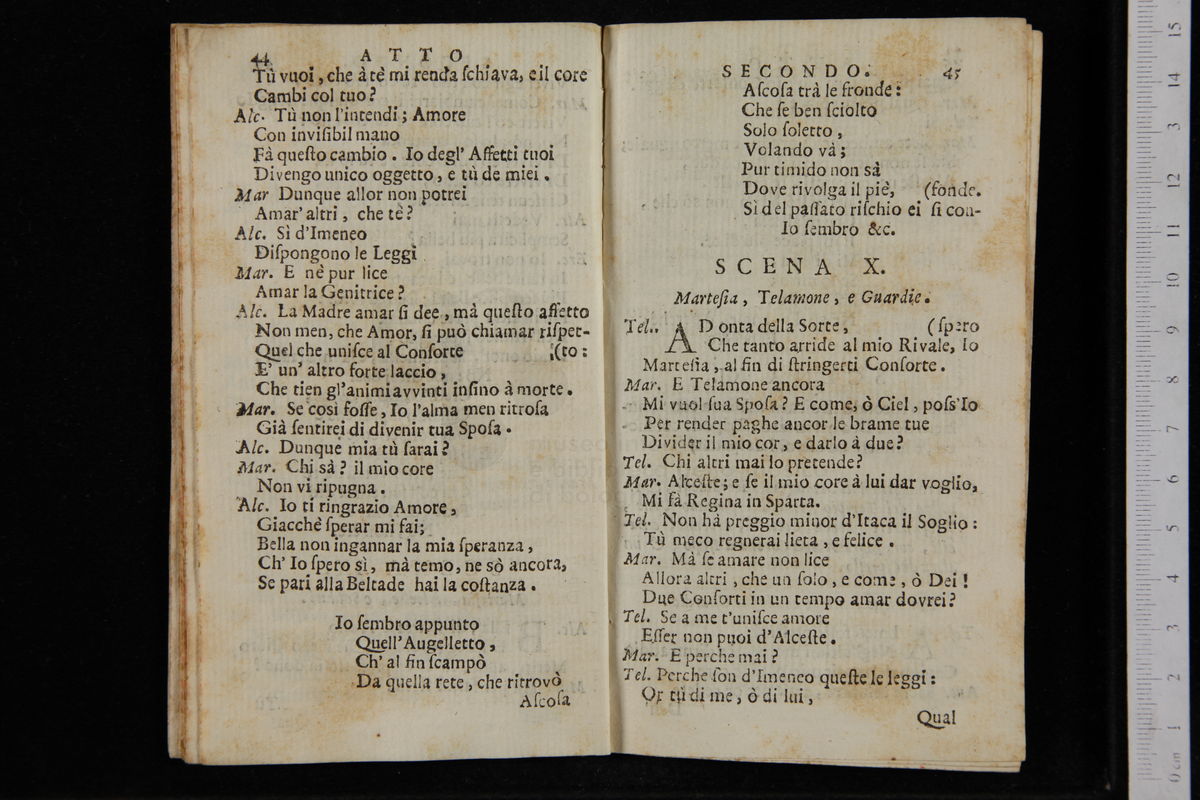 44 ATTO
Tù vuoi, che à tè mi renda ſchiava, e il core
Cambi col tuo?
Alc. Tù non l'intendi; Amore
Con inviſibil mano
Fà queſto cambio. Io degl' Affetti tuoi
Divengo unico oggetto, e tù de miei.
Mar Dunque allor non potrei
Amar' altri, che tè?
Alc. Sì d'Imeneo
Diſpongono le Leggi
Mar. E nè pur lice
Amar la Genitrice?
Alc. La Madre amar ſi dee, mà queſto affetto
Non men, che Amor, ſi può chiamar riſpet-
Quel che uniſce al Conſorte (to:
E' un' altro forte laccio,
Che tien gl'animi avvinti inſino à morte.
Mar. Se così foſſe, Io l'alma men ritroſa
Già ſentirei di divenir tua Spoſa.
Alc. Dunque mia tù ſarai?
Mar. Chi sà? il mio core
Non vi ripugna.
Alc. Io ti ringrazio Amore,
Giacchè ſperar mi fai;
Bella non ingannar la mia ſperanza,
Ch' Io ſpero sì, mà temo, ne sò ancora,
Se pari alla Beltade hai la coſtanza.
Io ſembro appunto
Quell' Augelletto,
Ch' al fin ſcampò
Da quella rete, che ritrovò
Aſcoſa
SECONDO. 45
Aſcoſa trà le fronde:
Che ſe ben ſciolto
Solo ſoletto,
Volando và;
Pur timido non sà
Dove rivolga il piè, (fonde.
Sì del paſſato riſchio ei ſi con-
Io ſembro &c.
SCENA X.
Marteſia, Telamone, e Guardie.
Tel. AD onta della Sorte, (ſpero
Che tanto arride al mio Rivale, Io
Marteſia, al fin di ſtringerti Conſorte.
Mar. E Telamone ancora
Mi vuol ſua Spoſa? E come, ò Ciel, poſs'Io
Per render paghe ancor le brame tue
Divider il mio cor, e darlo à due?
Tel. Chi altri mai lo pretende?
Mar. Alceſte; e ſe il mio core à lui dar voglio,
Mi fà Regina in Sparta.
Tel. Non hà preggio minor d'Itaca il Soglio:
Tù meco regnerai lieta, e felice.
Mar. Mà ſe amare non lice
Allora altri, che un ſolo, e come, ò Dei!
Due Conſorti in un tempo amar dovrei?
Tel. Se a me t'uniſce amore
Eſſer non puoi d'Alceſte.
Mar. E perche mai?
Tel. Perche ſon d'Imeneo queſte le leggi:
Or tù di me, ò di lui,
Qual
0 cm 1 2 3 4 5 6 7 8 9 10 11 12 3 14 15